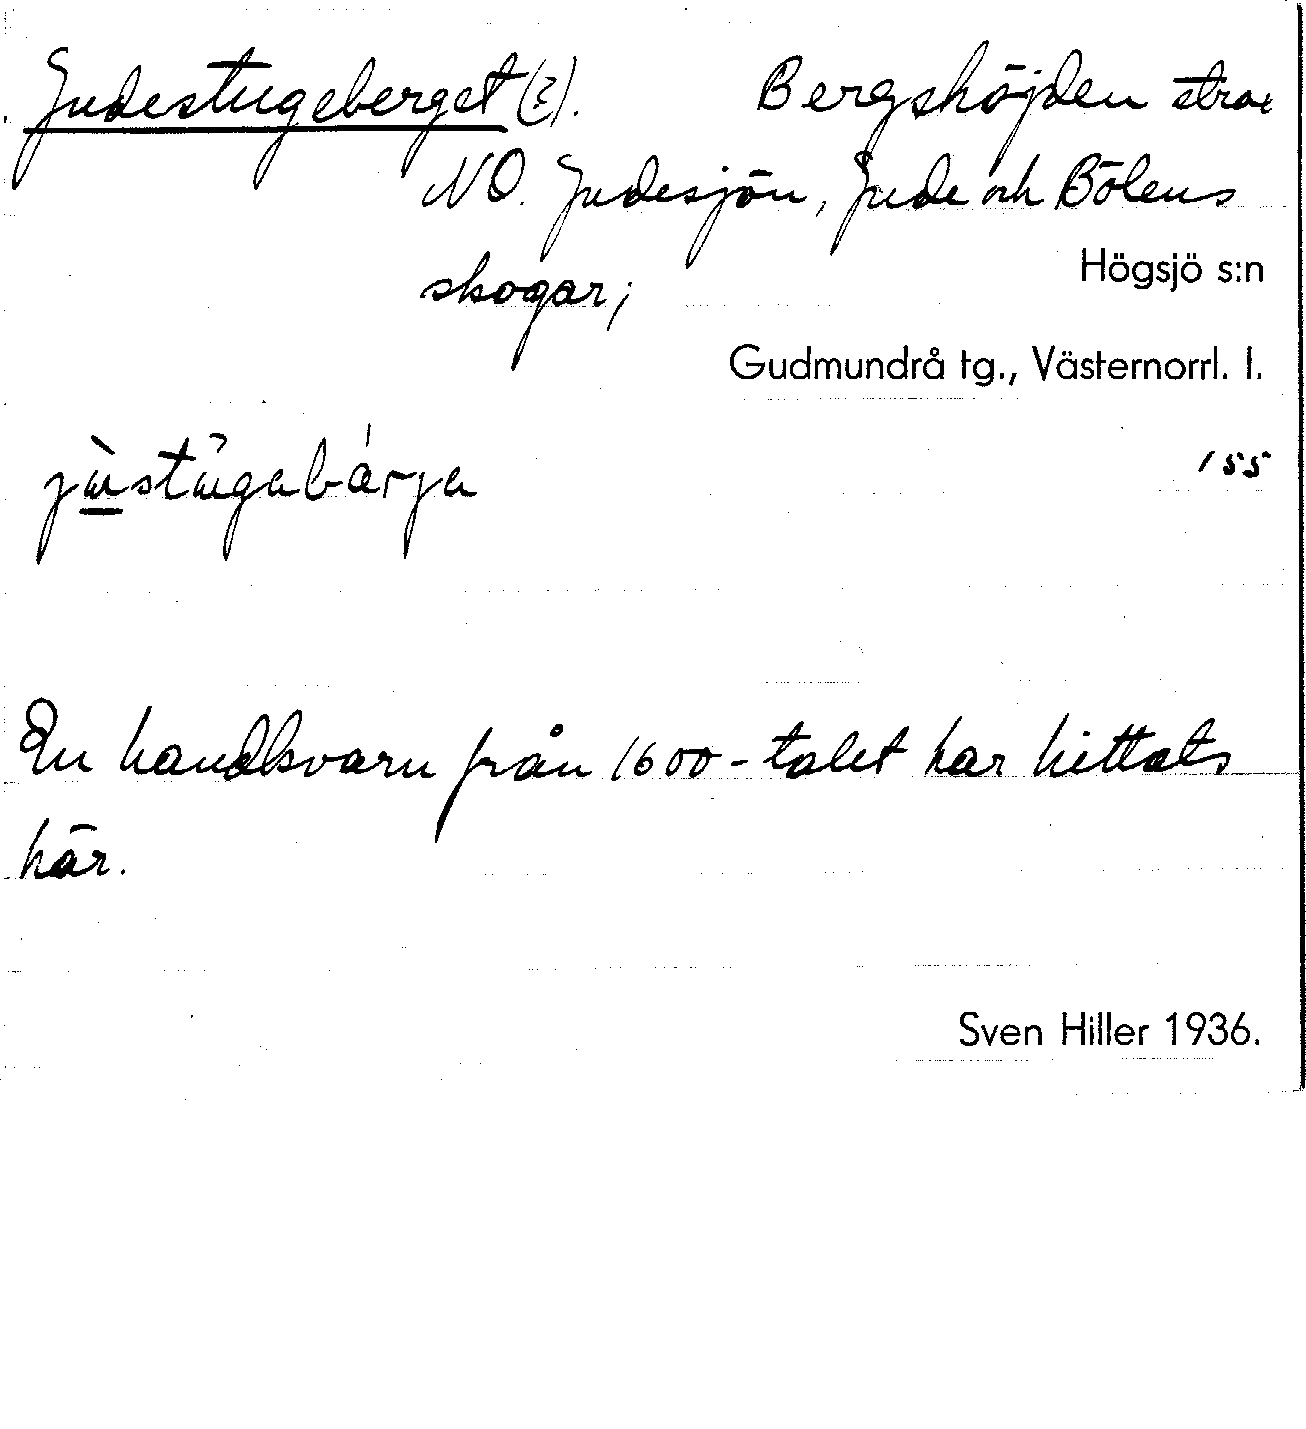 Judestugeberget (?). Bergshöjden strax
NO. Judesjön, Jude och Bölens
skogar;
Högsjö s:n
Gudmundrå tg., Västernorrl. l.
155
En handkvarn från 1600-talet har hittats
här.
Sven Hiller 1936.